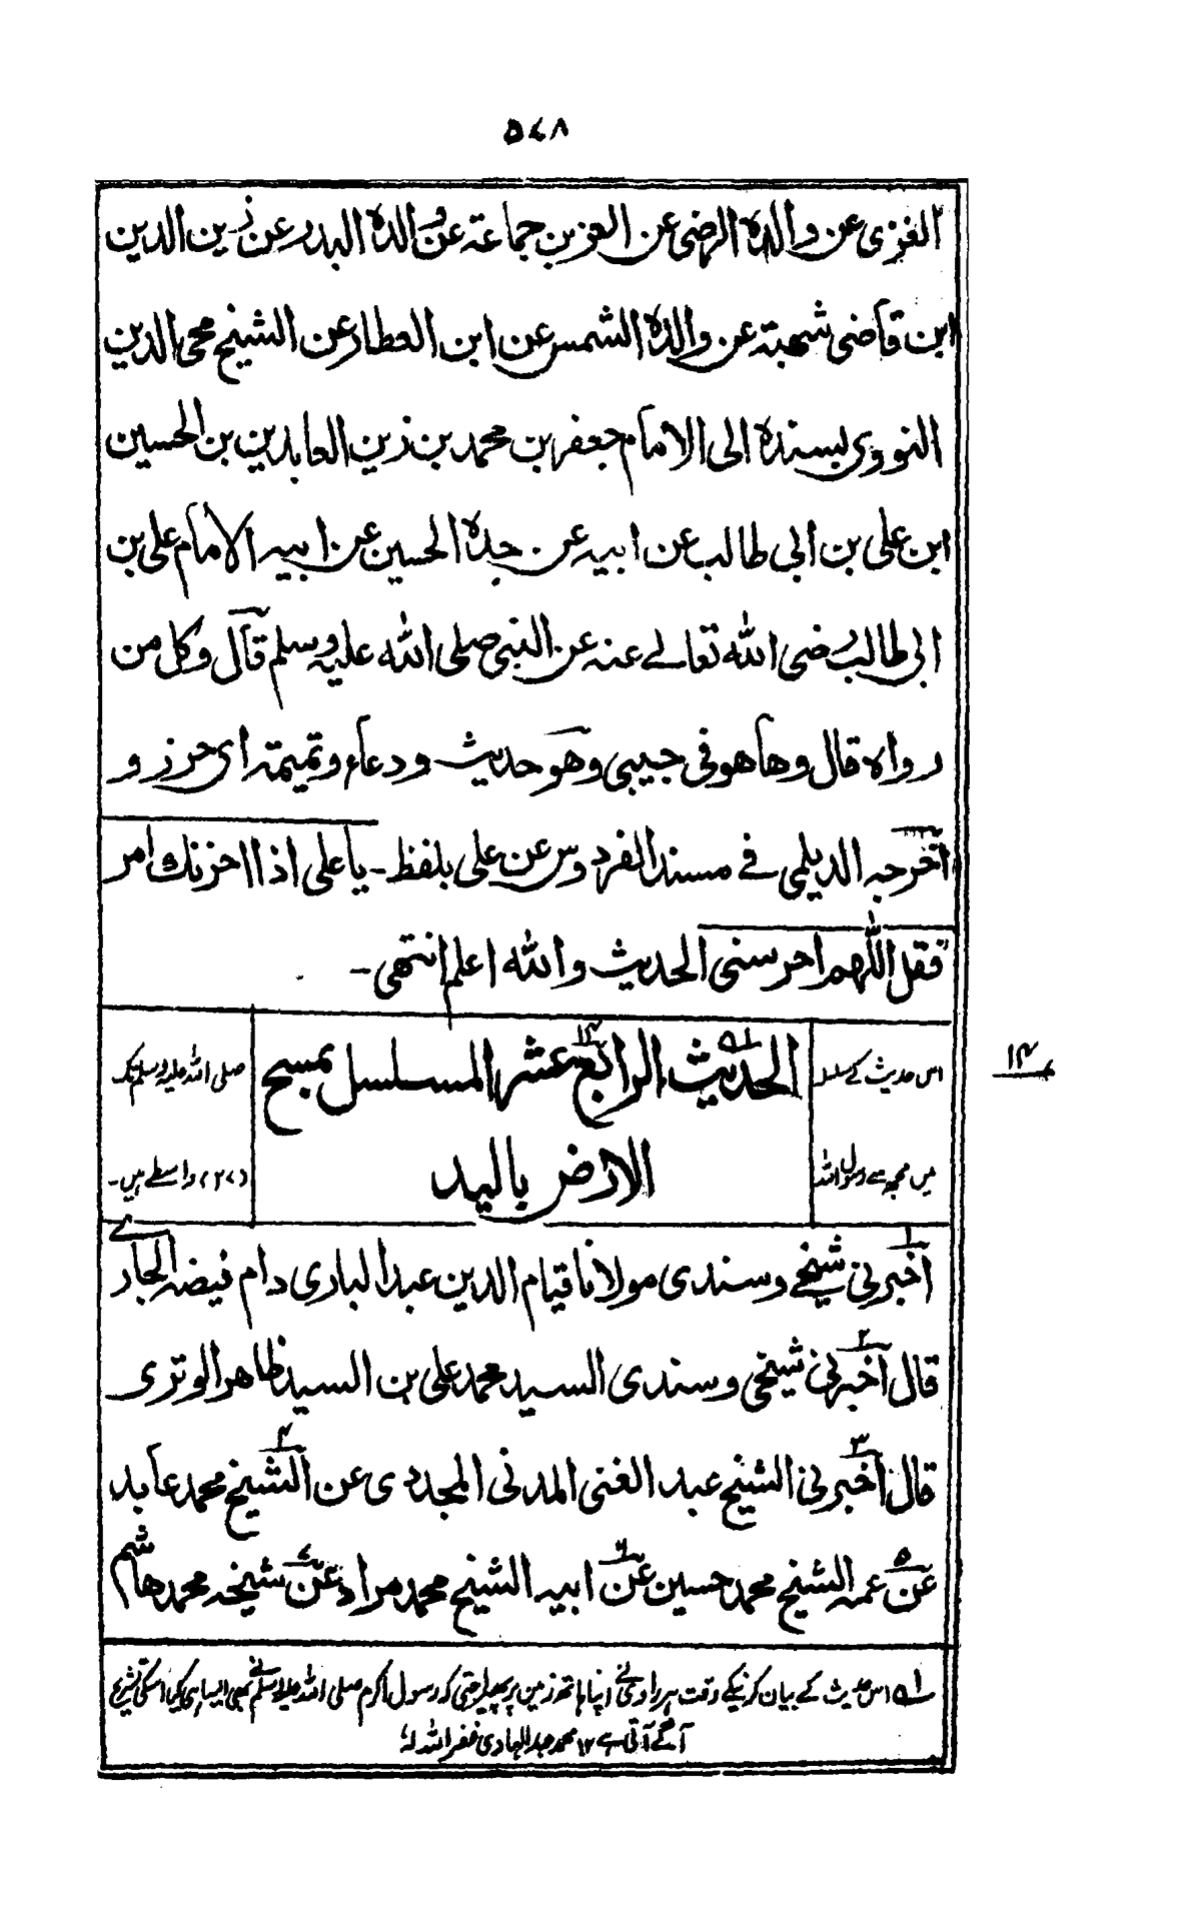 ۵۷۸
الغزی عن والده الرضی عن العز بن جماعة عن والده البدر عن زین الدین
ابن قاضی شهبة عن والده الشمس عن ابن العطار عن الشیخ محی الدین
النووی بسنده الی الامام جعفر بن محمد بن زین العابدین بن الحسین
ابن علی بن ابی طالب عن ابیه عن جده الحسین عن ابیه الامام علی بن
ابی طالب رضی الله تعالے عنه عن النبی صلی الله علیه وسلم قال وکل من
رواه قال وها هو فی جیبی وهو حدیث ودعاء وتمیمة ای حرز و
اخرجه الدیلمی فے مسند الفردوس عن علی بلفظ ۔ یا علی اذا احزنك امر
فقل اللهم احرسنی الحدیث والله اعلم انتهی ۔
الحدیث الرابع عشر المسلسل بمسح ۱۴
الارض بالید
اس حدیث کے سلسلہ
میں مجھ سے رسول اللہ
صلی اللہ علیہ وسلم تک
(۲۷) واسطے ہیں ۔
۱۴
اخبرنی ۱ شیخے وسندی مولانا قیام الدین عبد الباری دام فیضه الجارے
قال اخبرنی ۲ شیخی وسندی السید محمد علی بن السید ظاهر الوتری
قال اخبرنی ۳ الشیخ عبد الغنی المدنی المجددی عن ۴ الشیخ محمد عابد
عن ۵ عمه الشیخ محمد حسین عن ۶ ابیه الشیخ محمد مراد عن ۷ شیخه محمد هاشم
۱ اس حدیث کے بیان کرنیکے وقت ہر راوی نے اپنا ہاتھ زمین پر پھیرا حتی کہ رسول اکرم صلی اللہ علیہ وسلم نے بھی ایسا ہی کیا اسکی تشریح
آگے آتی ہے ۱۲ محمد عبد الہادی غفر اللہ لہٗ